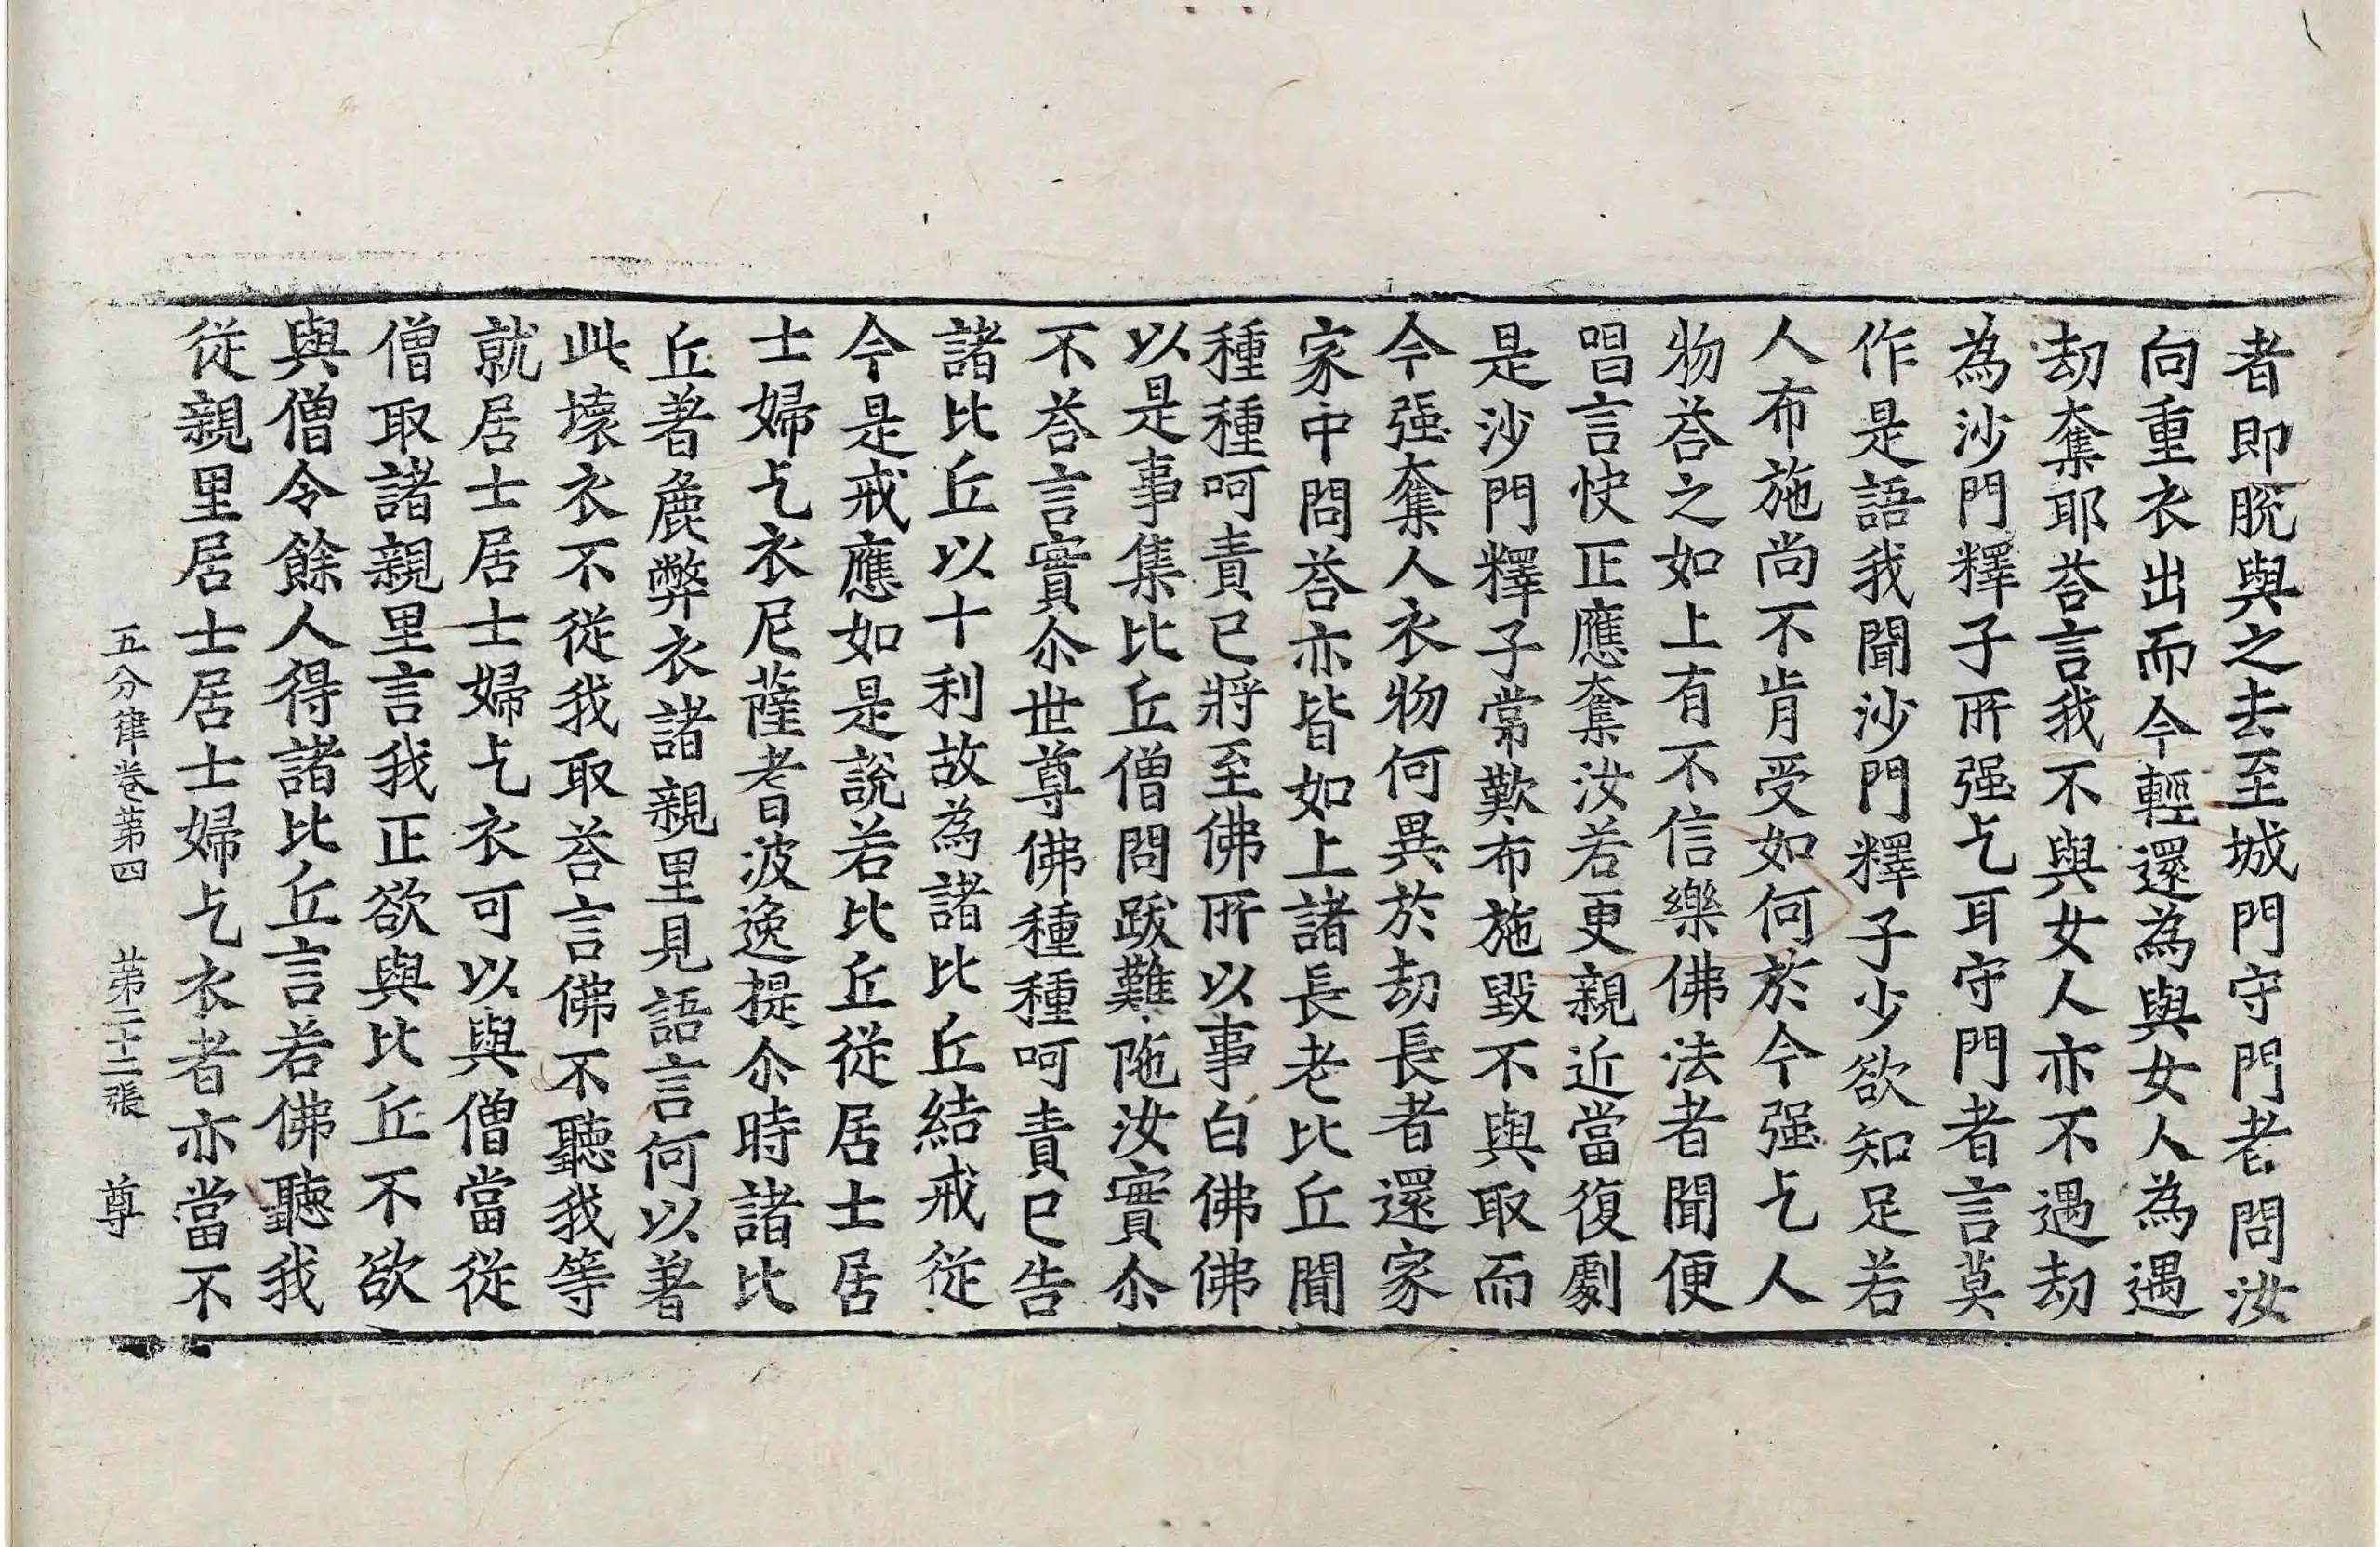 者即脫與之去至城門守門老問汝
向重衣出而今輕還為與女人為遇
劫奪耶荅言我不與女人亦不遇劫
為沙門釋子所强乞耳守門者言莫
作是語我聞沙門釋子少欲知足若
人布施尚不肯受如何於今强乞人
物荅之如上有不信樂佛法者聞便
唱言快正應奪汝若更親近當復劇
是沙門釋子常歎布施毀不與取而
今强奪人衣物何異於劫長者還家
家中問荅亦皆如上諸長老比丘聞
種種呵責已將至佛所以事白佛佛
以是事集比丘僧問跋難陁汝實尒
不荅言實尒世尊佛種種呵責已告
諸比丘以十利故為諸比丘結戒從
今是戒應如是說若比丘從居士居
士婦乞衣尼薩耆波逸提尒時諸比
丘著麁弊衣諸親里見語言何以著
此壞衣不從我取荅言佛不聽我等
就居士居士婦乞衣可以與僧當從
僧取諸親里言我正欲與比丘不欲
與僧令餘人得諸比丘言若佛聽我
從親里居士居士婦乞衣者亦當不
五分律卷第四 第二十二張 尊